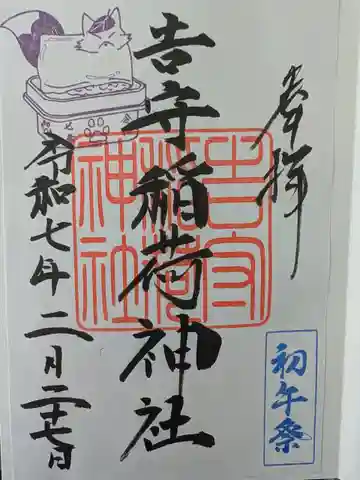 奉拝
吉守稲荷神社
吉守
稲荷
神社
令和七年二月二十七日
初午祭